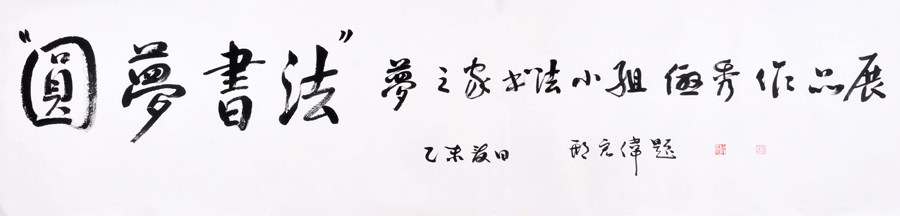 "圓夢書法" 夢之家书法小組優秀作品展
乙未夏日 邢元偉題